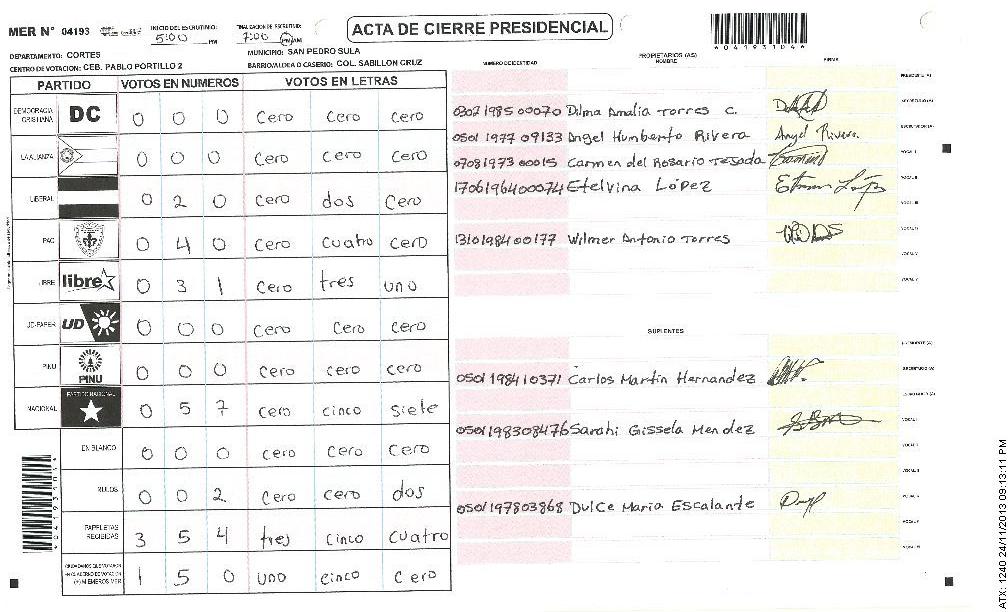 MER N° 04193
INICIO DEL ESCRUTINIO:
5:00 PM
FINALIZACION DE ESCRUTINIO:
7:00 PM/AM
ACTA DE CIERRE PRESIDENCIAL
DEPARTAMENTO: CORTES
MUNICIPIO: SAN PEDRO SULA
CENTRO DE VOTACION: CEB. PABLO PORTILLO 2
BARRIO/ALDEA O CASERIO: COL. SABILLON CRUZ
PARTIDO VOTOS EN NUMEROS VOTOS EN LETRAS
DEMOCRACIA CRISTIANA DC 0 0 0 Cero Cero Cero
LA ALIANZA 0 0 0 Cero Cero Cero
LIBERAL 0 2 0 Cero dos Cero
PAC 0 4 0 Cero Cuatro Cero
LIBRE libre 0 3 1 Cero tres uno
UD-FAPER UD 0 0 0 Cero Cero Cero
PINU PINU 0 0 0 Cero Cero Cero
NACIONAL PARTIDO NACIONAL 0 5 7 Cero cinco Siete
EN BLANCO 0 0 0 Cero Cero Cero
NULOS 0 0 2 Cero Cero dos
PAPELETAS RECIBIDAS 3 5 4 tres Cinco Cuatro
1 5 0 uno Cinco Cero
NUMERO DE IDENTIDAD
PROPIETARIOS (AS)
NOMBRE
FIRMA
0302 1985 00070 Dilma Amalia Torres C.
0501 1977 09133 Angel Humberto Rivera Angel Rivera
0708 1973 00015 Carmen del Rosario Tejada
1706196400074 Etelvina López
1310198400177 Wilmer Antonio Torres
SUPLENTES
0501 198410371 Carlos Martin Hernandez
0501198308476 Sarahi Gissela Mendez
0501197803868 Dulce Maria Escalante
ATX: 1240 24/11/2013 09:13:11 PM